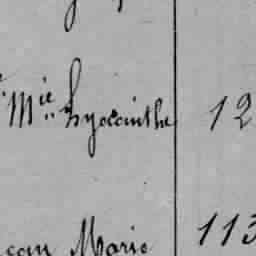 Mie Hyacinthe 12
ean Marie 113